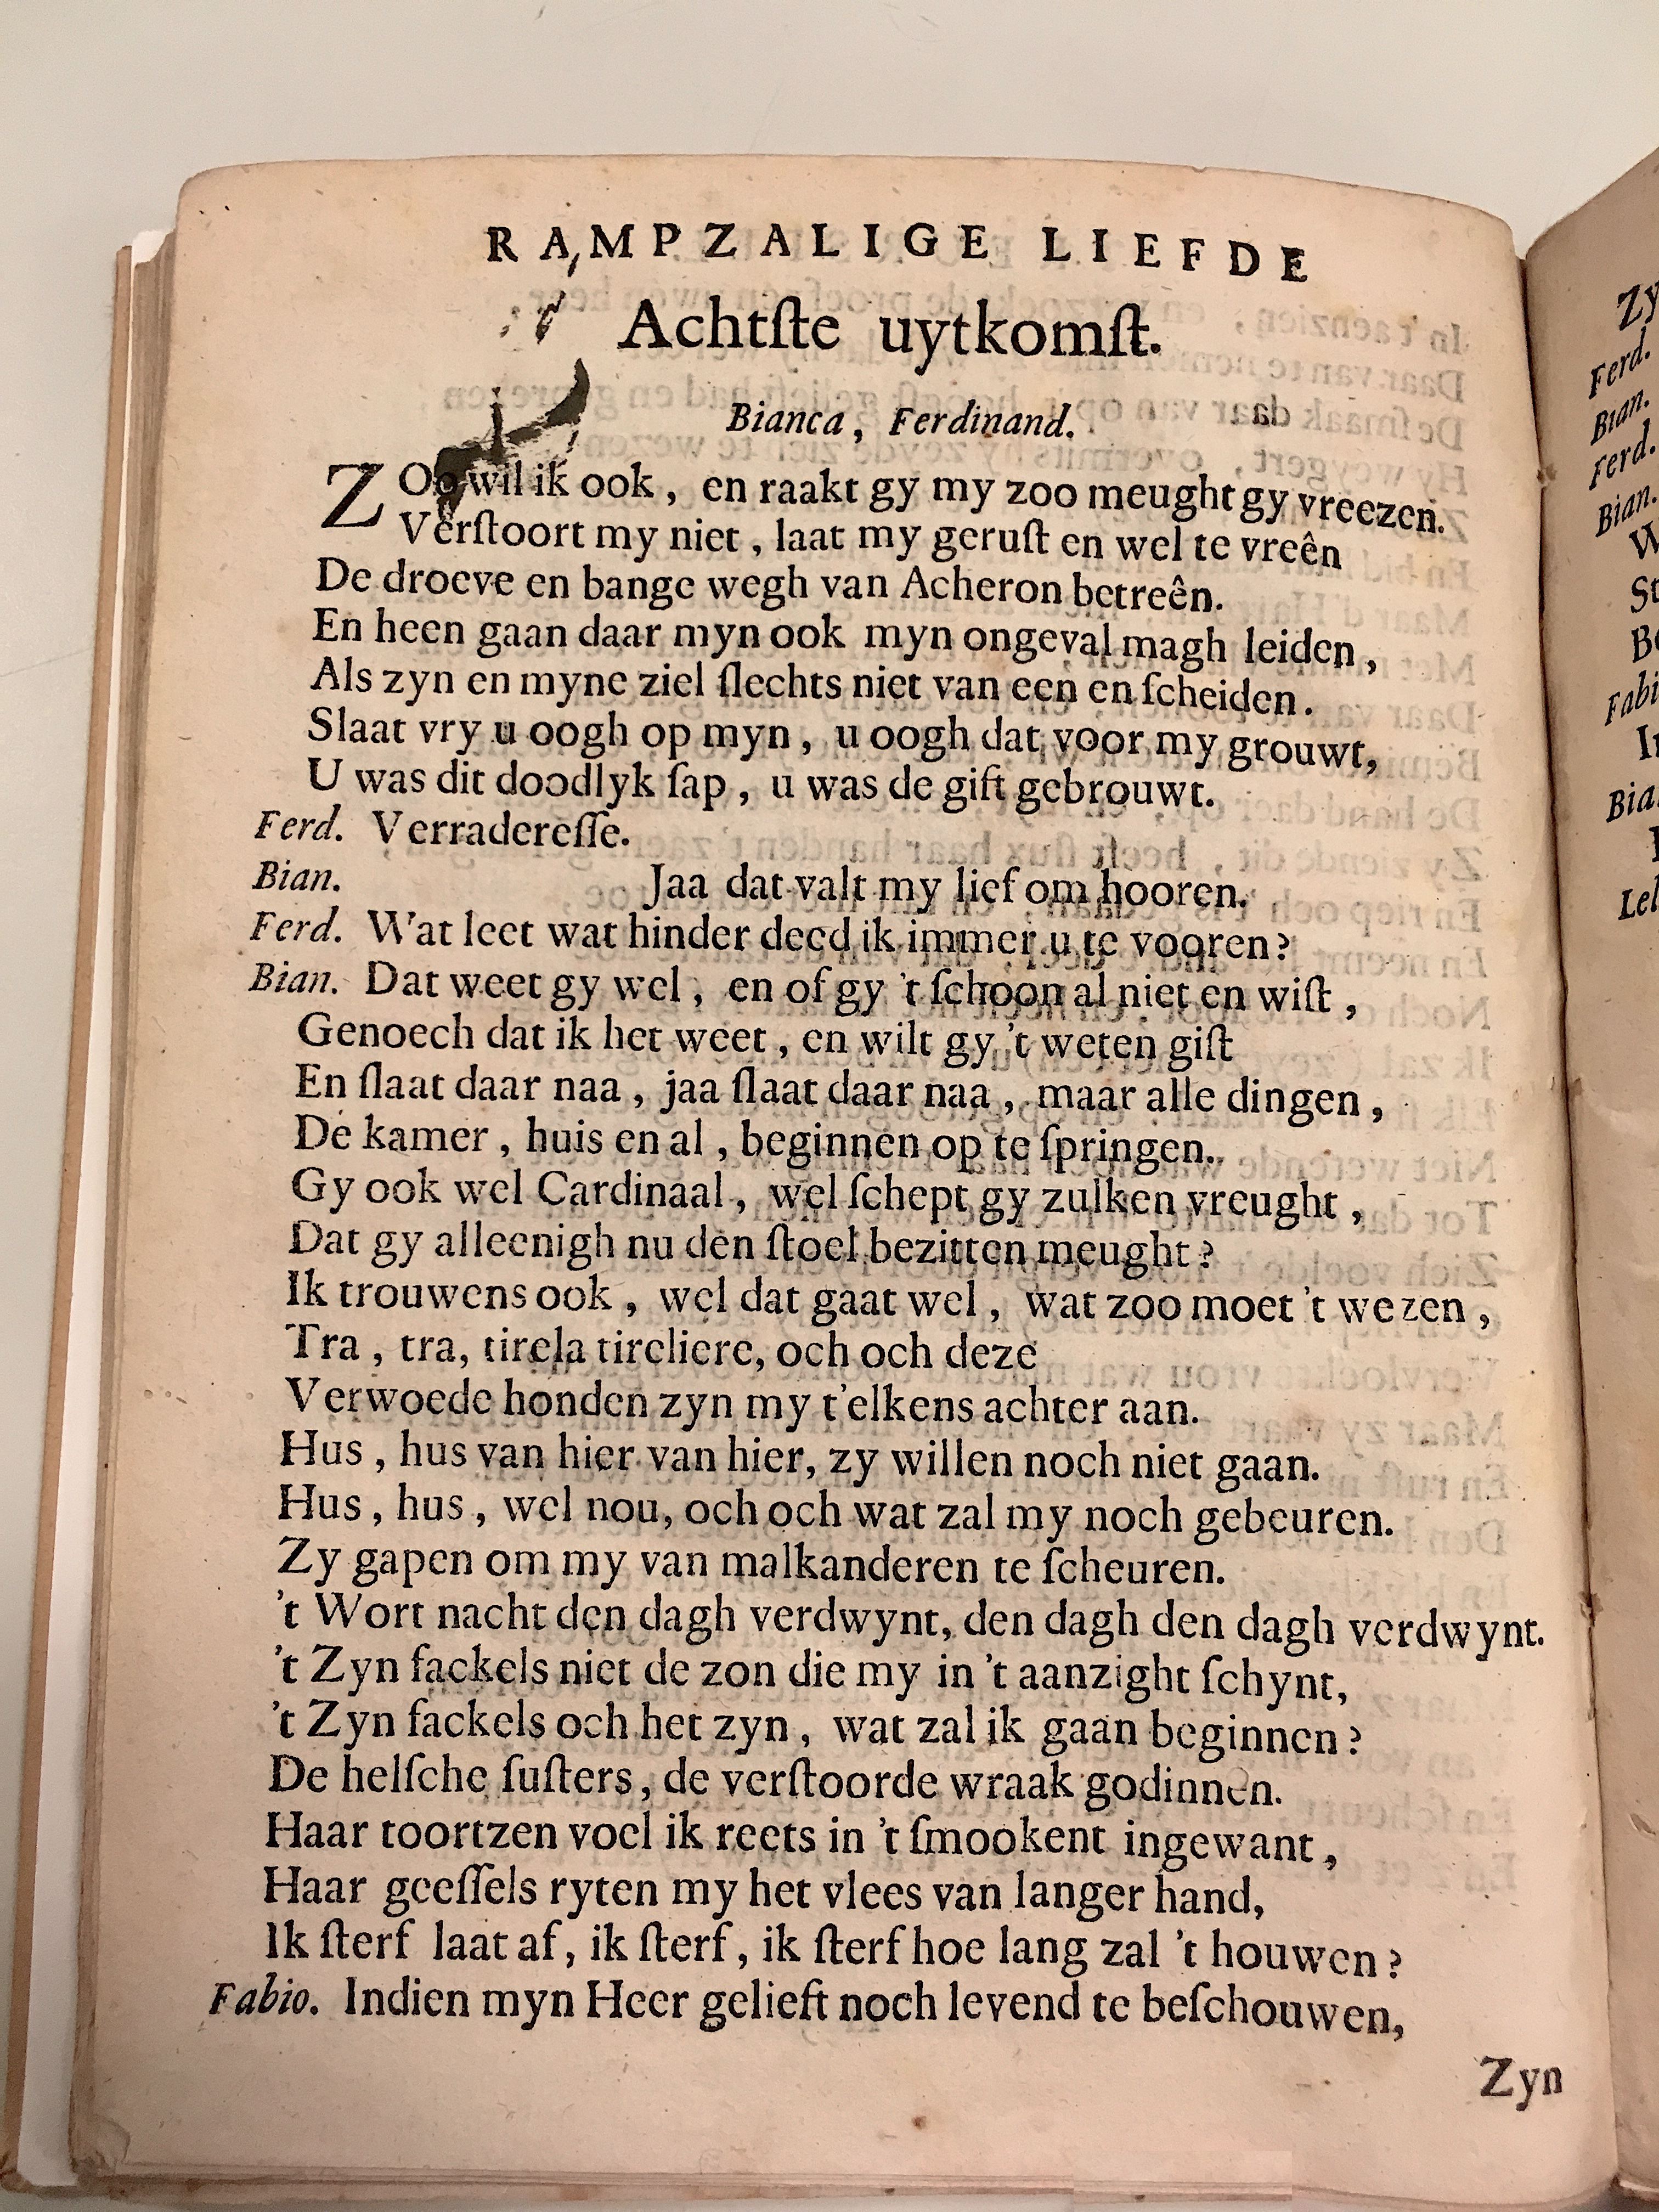 RAMPZALIGE LIEFDE
Achtſte uytkomſt.
Bianca, Ferdinand.
ZOo wil ik ook, en raakt gy my zoo meught gy vreezen.
Verſtoort my niet, laat my geruſt en wel te vreên
De droeve en bange wegh van Acheron betreên.
En heen gaan daar myn ook myn ongeval magh leiden,
Als zyn en myne ziel ſlechts niet van een en ſcheiden.
Slaat vry u oogh op myn, u oogh dat voor my grouwt,
U was dit doodlyk ſap, u was de gift gebrouwt.
Ferd. Verradereſſe.
Bian. Jaa dat valt my lief om hooren.
Ferd. Wat leet wat hinder deed ik immer u te vooren?
Bian. Dat weet gy wel, en of gy 't ſchoon al niet en wiſt,
Genoech dat ik het weet, en wilt gy 't weten giſt
En ſlaat daar naa, jaa ſlaat daar naa, maar alle dingen,
De kamer, huis en al, beginnen op te ſpringen.
Gy ook wel Cardinaal, wel ſchept gy zulken vreught,
Dat gy alleenigh nu den ſtoel bezitten meught?
Ik trouwens ook, wel dat gaat wel, wat zoo moet 't wezen,
Tra, tra, tirela tireliere, och och deze
Verwoede honden zyn my t'elkens achter aan.
Hus, hus van hier van hier, zy willen noch niet gaan.
Hus, hus, wel nou, och och wat zal my noch gebeuren.
Zy gapen om my van malkanderen te ſcheuren.
't Wort nacht den dagh verdwynt, den dagh den dagh verdwynt.
't Zyn fackels niet de zon die my in 't aanzight ſchynt,
't Zyn fackels och het zyn, wat zal ik gaan beginnen?
De helſche ſuſters, de verſtoorde wraak godinnen.
Haar toortzen voel ik reets in 't ſmookent ingewant,
Haar geeſſels ryten my het vlees van langer hand,
Ik ſterf laat af, ik ſterf, ik ſterf hoe lang zal 't houwen?
Fabio. Indien myn Heer gelieft noch levend te beſchouwen,
Zyn
Zy
Ferd.
Bian.
Ferd.
Bian.
W
St
Fabi
Bia.
Lel